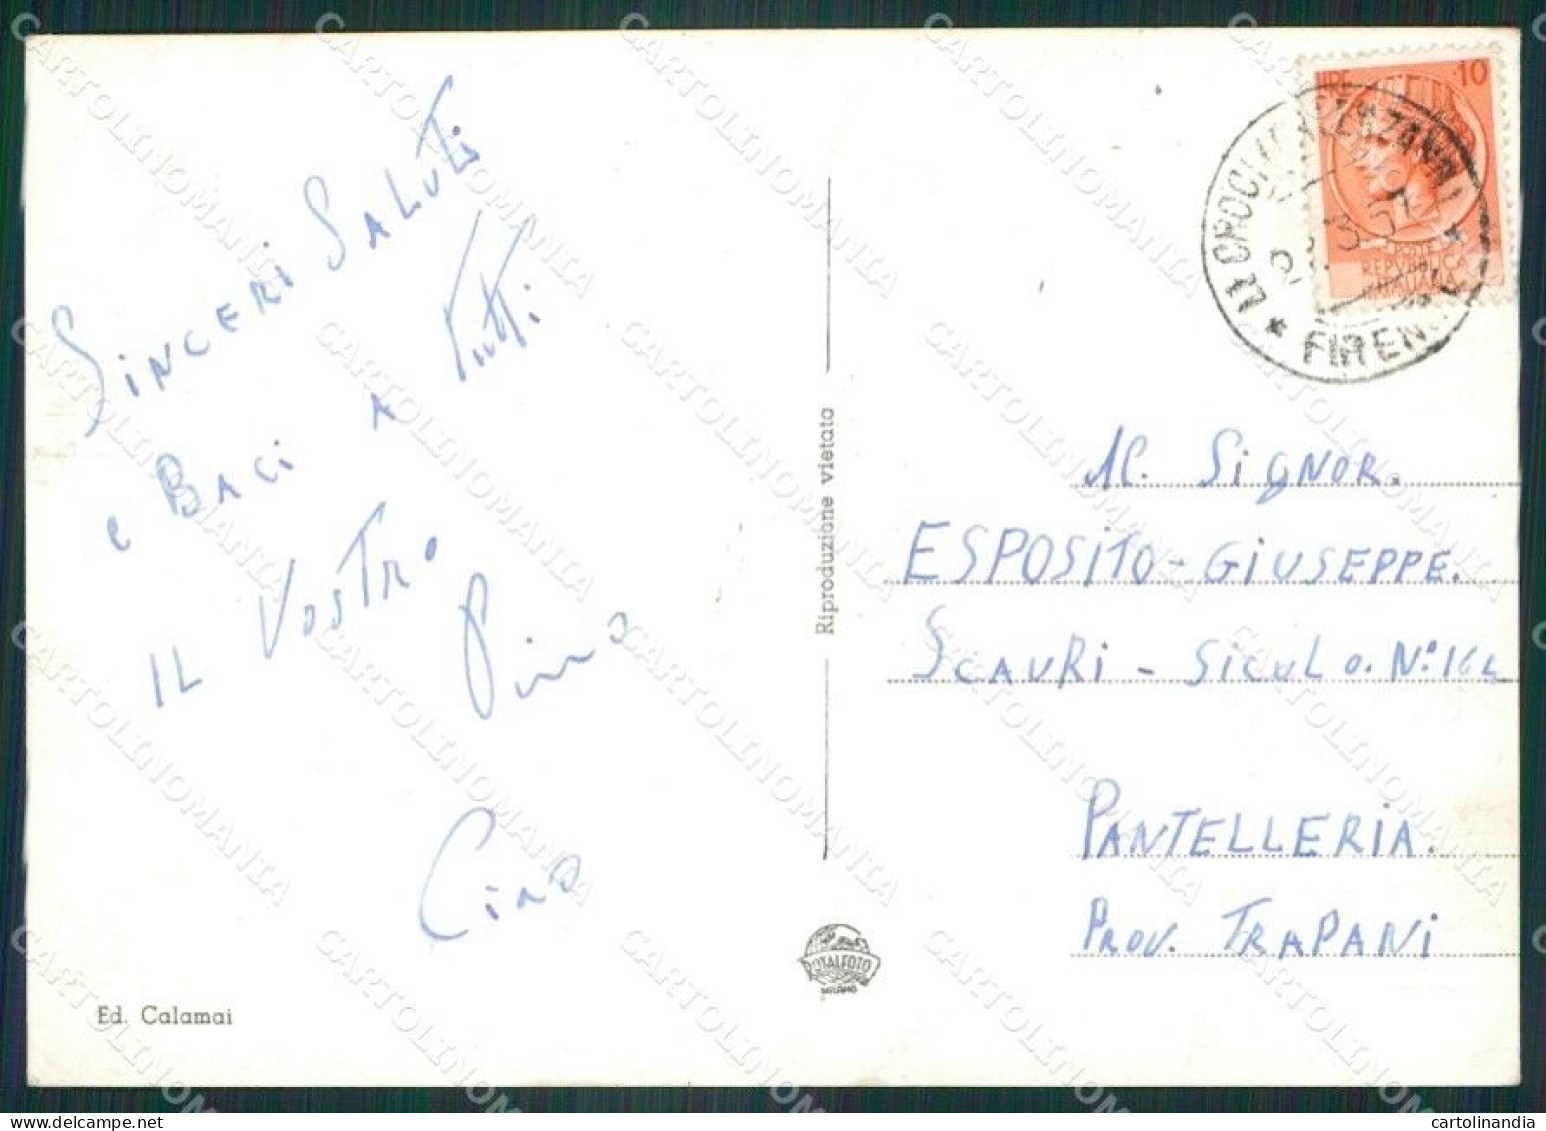 Sinceri Saluti
e Baci a Tutti
Il Vostro
Pino
Ciao
Ed. Calamai
Riproduzione vietata
ROTALFOTO
MILANO
LIRE 10
REPVBBLICA
ITALIANA
FIREN
Al. Signor.
ESPOSITO - GIUSEPPE.
SCAURI - SICULO. N°
PANTELLERIA.
PROV. TRAPANI
CARTOLINOMANIA
cartolinandia